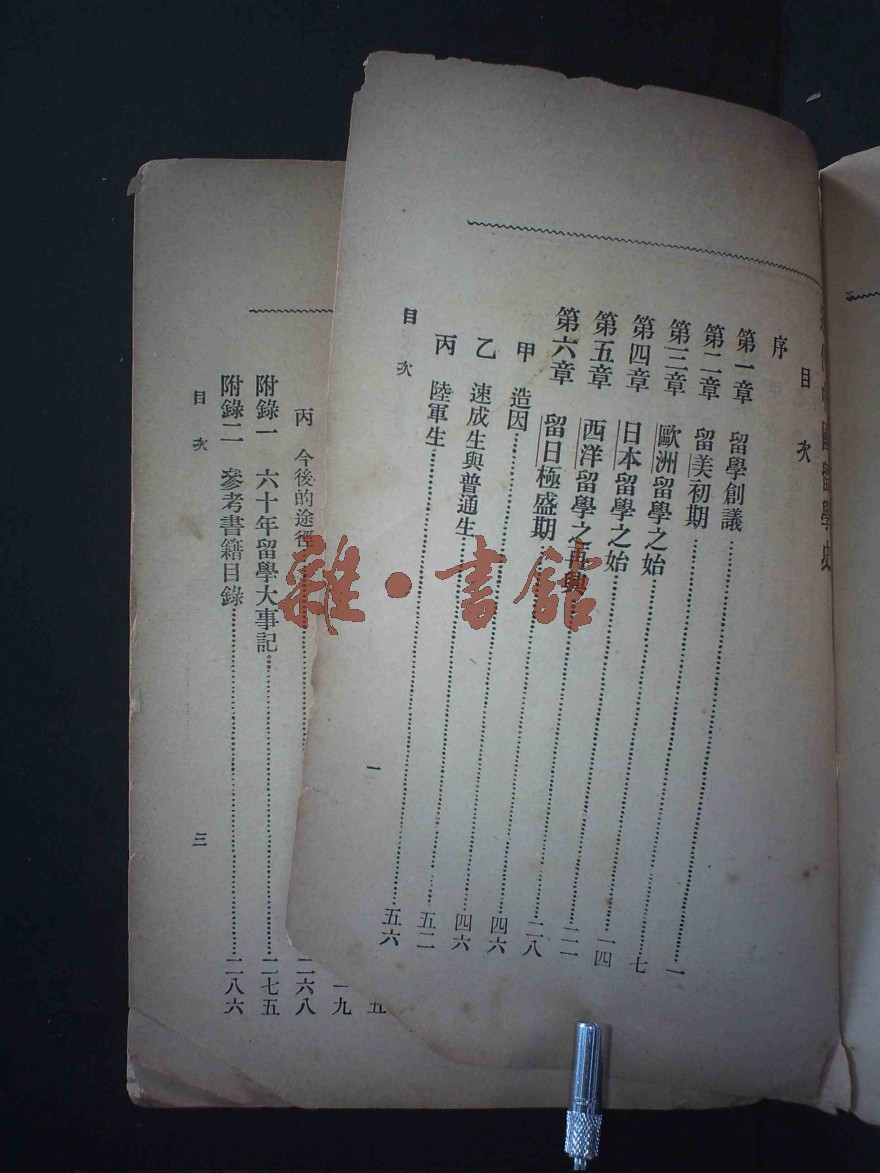 國留學史
目次
序
第一章 留學創議……一
第二章 留美初期……七
第三章 歐洲留學之始……一四
第四章 日本留學之始……二二
第五章 西洋留學之再興……二八
第六章 留日極盛期……四六
甲 造因……四六
乙 速成生與普通生……五二
丙 陸軍生……五六
目次
一
五
一九
丙 今後的途徑……二六八
附錄一 六十年留學大事記……二七五
附錄二 參考書籍目錄……二八六
目次
三
雜·書館